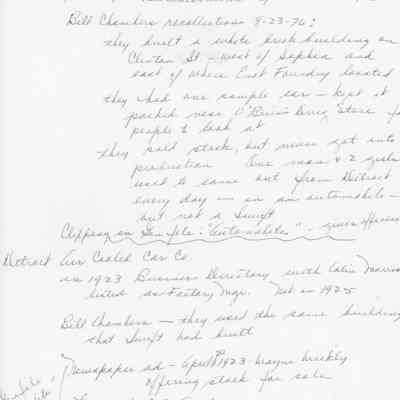 Bill Chambers recollections 8-23-76:
they built a white brick building on
Clinton St - west of Sophia and
east of where East Foundry located
they had one sample car - kept it
parked near O'Brien Drug Store for
people to look at
they sold stock, but never got into
production One man & 2 girls
used to come out from Detroit
every day - in an automobile -
but not a Swift
Clipping in Gen file: "Automobiles" - gives officers
Detroit Air Cooled Car Co.
in 1923 Business Directory with
listed as Factory Mgr. Not in 1925
Bill Chambers - they used the same building
that Swift had built
Newspaper ad - April 1923 - Wayne Weekly
offering stock for sale